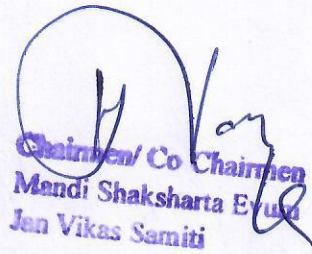 Chairmen/ Co Chairmen
Mandi Shaksharta Evum
Jan Vikas Samiti